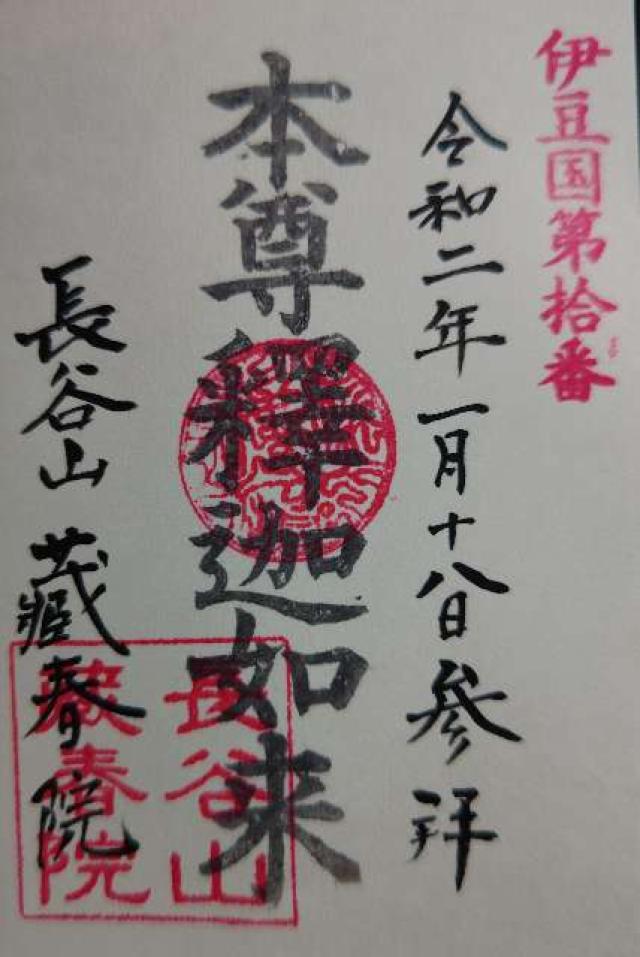 伊豆国第拾番
令和二年一月十八日参拜
本尊釋迦如来
長谷山藏春院
長谷山
藏春院